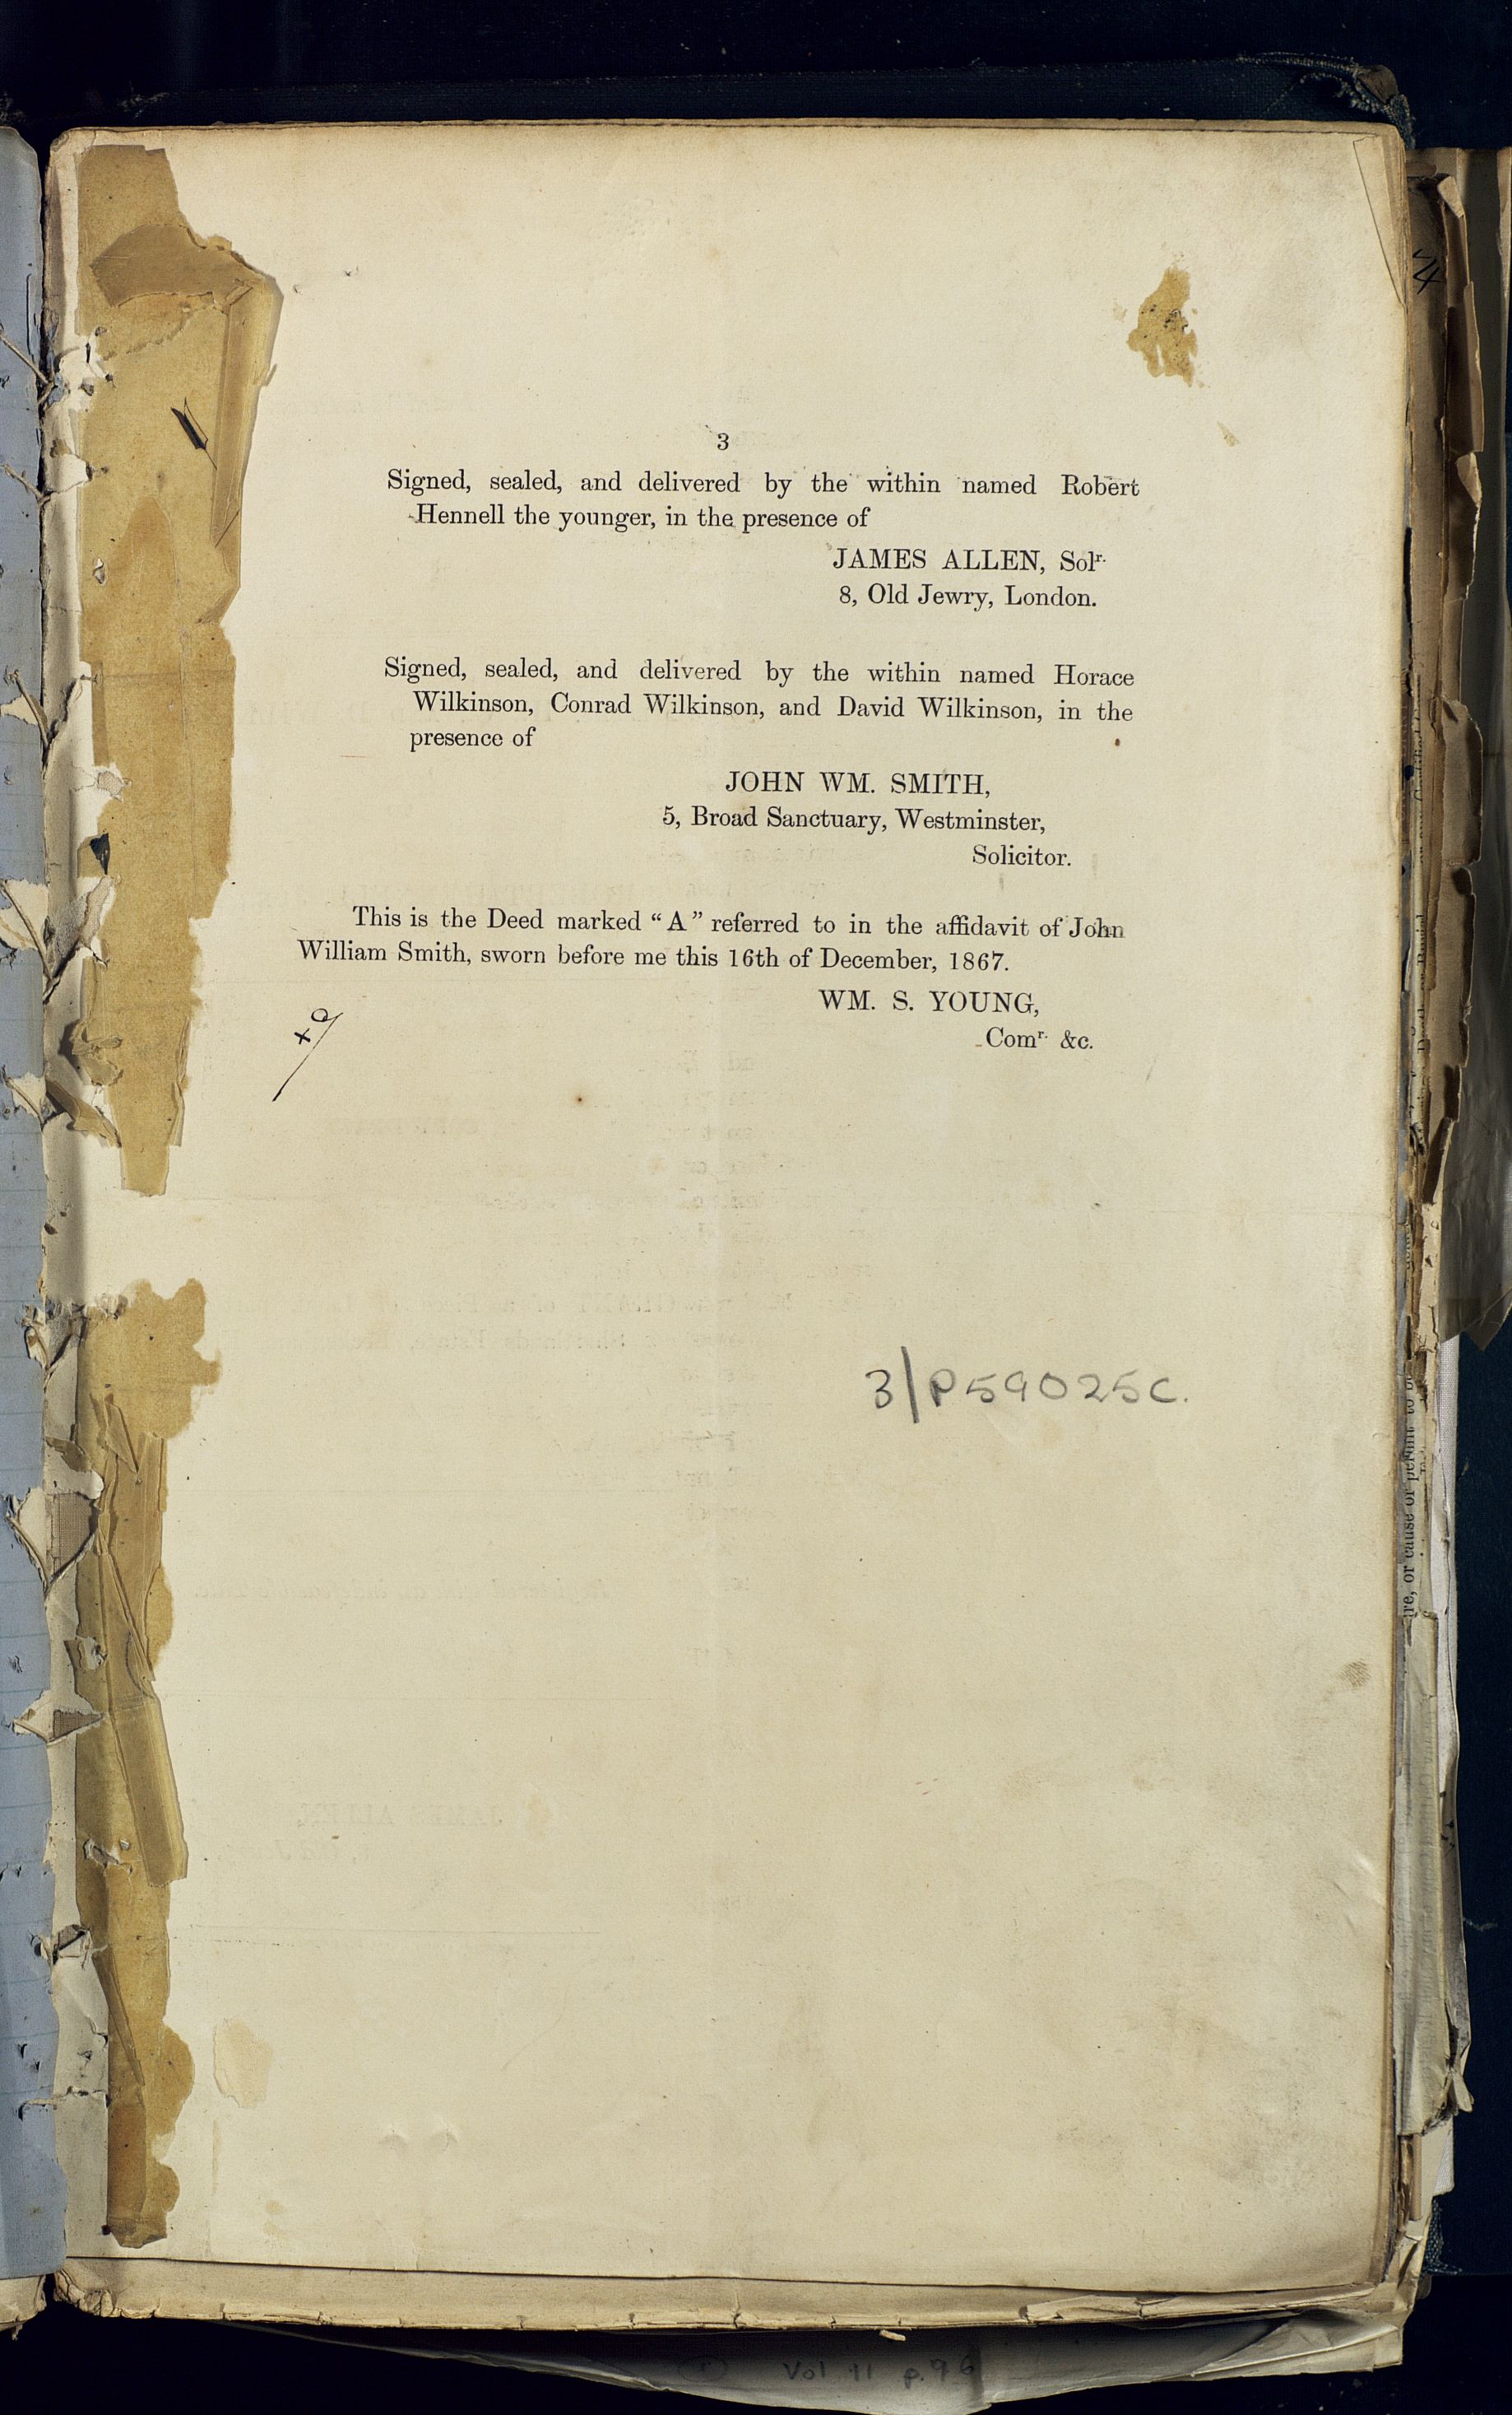 3
Signed, sealed, and delivered by the within named Robert
Hennell the younger, in the presence of
JAMES ALLEN, Solr.
8, Old Jewry, London.
Signed, sealed, and delivered by the within named Horace
Wilkinson, Conrad Wilkinson, and David Wilkinson, in the
presence of
JOHN WM. SMITH,
5, Broad Sanctuary, Westminster,
Solicitor.
This is the Deed marked “A” referred to in the affidavit of John
William Smith, sworn before me this 16th of December, 1867.
WM. S. YOUNG,
Comr. &c.
3/P59025C.
re, or cause or permit to be
Vol 11 p.96